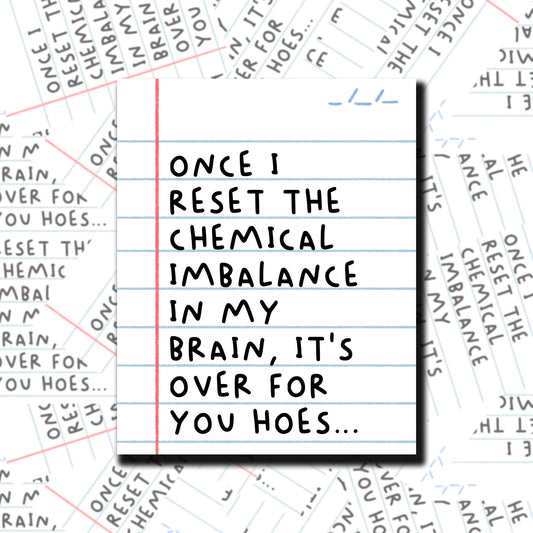 _/_/_
ONCE I
RESET THE
CHEMICAL
IMBALANCE
IN MY
BRAIN, IT'S
OVER FOR
YOU HOES...